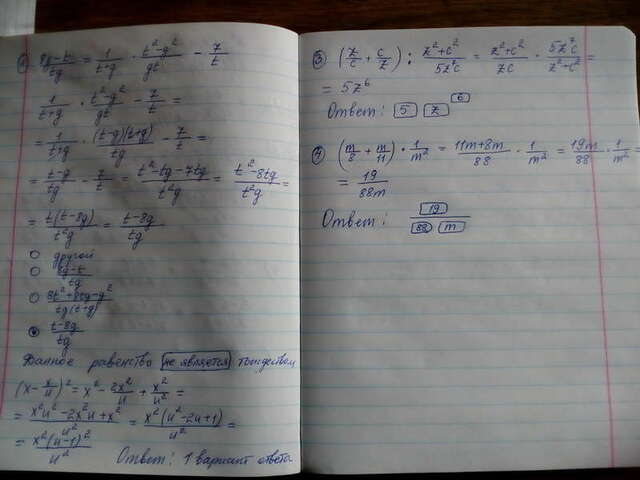 ① (8g-t)/tg = 1/(t+g) · (t²-g²)/gt - 7/t
1/(t+g) · (t²-g²)/gt - 7/t =
= 1/(t+g) · (t-g)(t+g)/tg - 7/t =
= (t-g)/tg - 7/t = (t²-tg-7tg)/t²g = (t²-8tg)/t²g =
= t(t-8g)/t²g = (t-8g)/tg
○ другой
○ (8g-t)/tg
○ (8t²+8tg-g²)/tg(t+g)
(t-8g)/tg
Данное равенство не является тождеством
(x - x/u)² = x² - 2x²/u + x²/u² =
= (x²u²-2x²u+x²)/u² = x²(u²-2u+1)/u² =
= x²(u-1)²/u²
Ответ: 1 вариант ответа
③ (z/c + c/z) : (z²+c²)/5z⁷c = (z²+c²)/zc · 5z⁷c/(z²+c²) =
= 5z⁶
Ответ: 5 z 6
④ (m/8 + m/11) · 1/m² = (11m+8m)/88 · 1/m² = 19m/88 · 1/m² =
= 19/88m
Ответ: 19/88 m